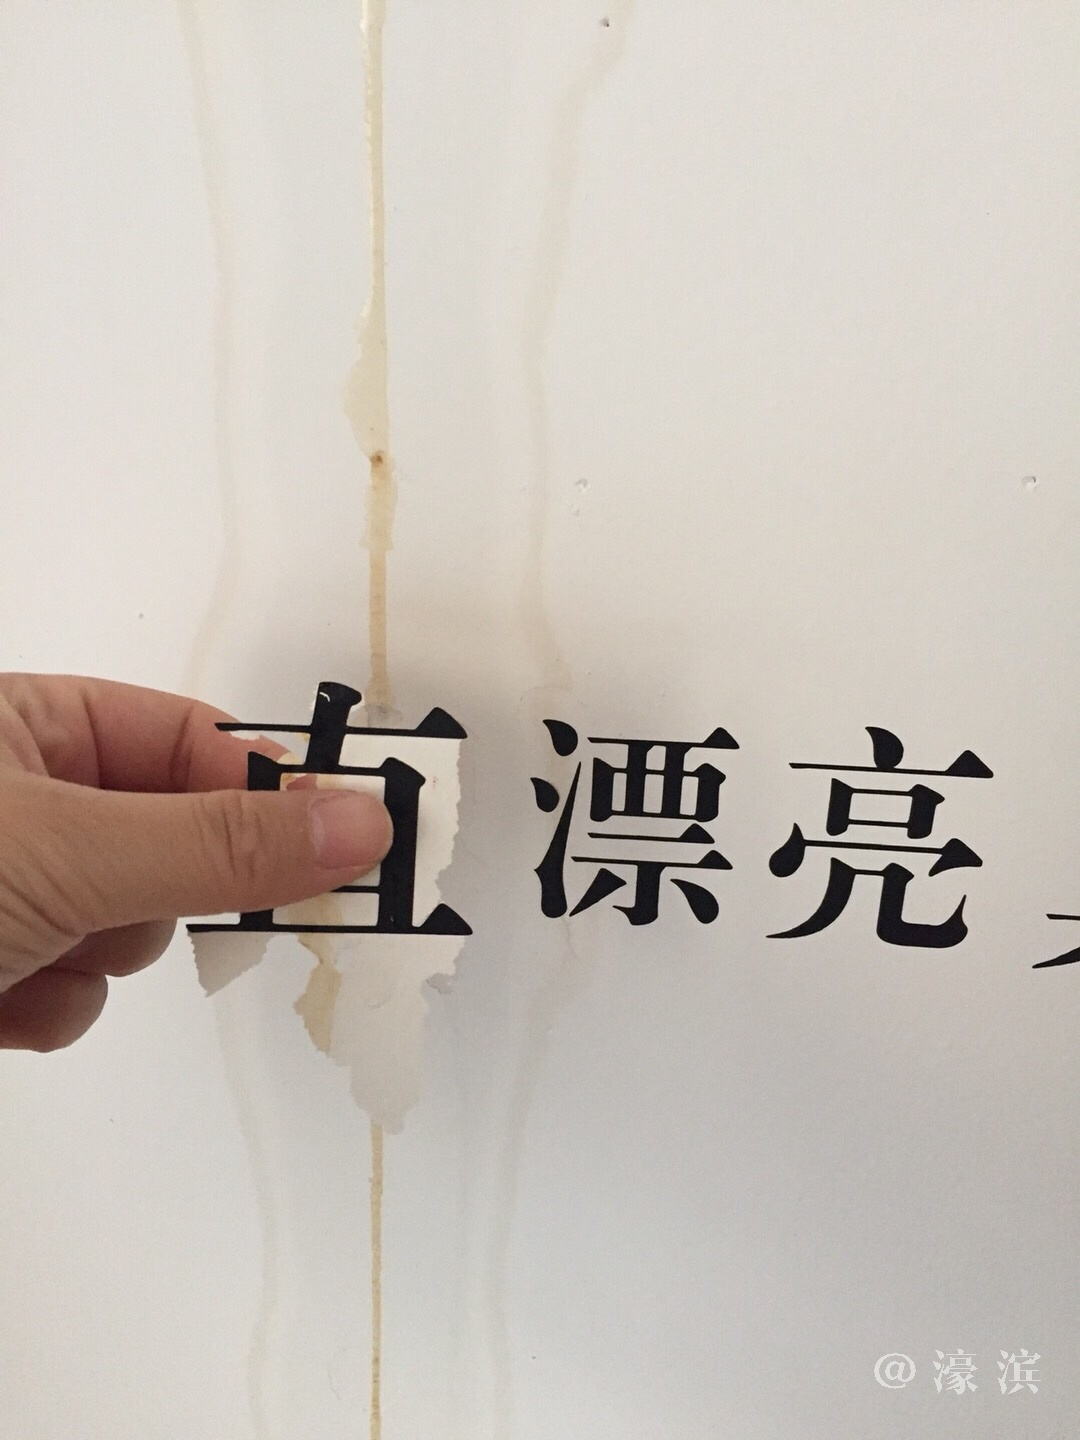 直漂亮
@濠滨